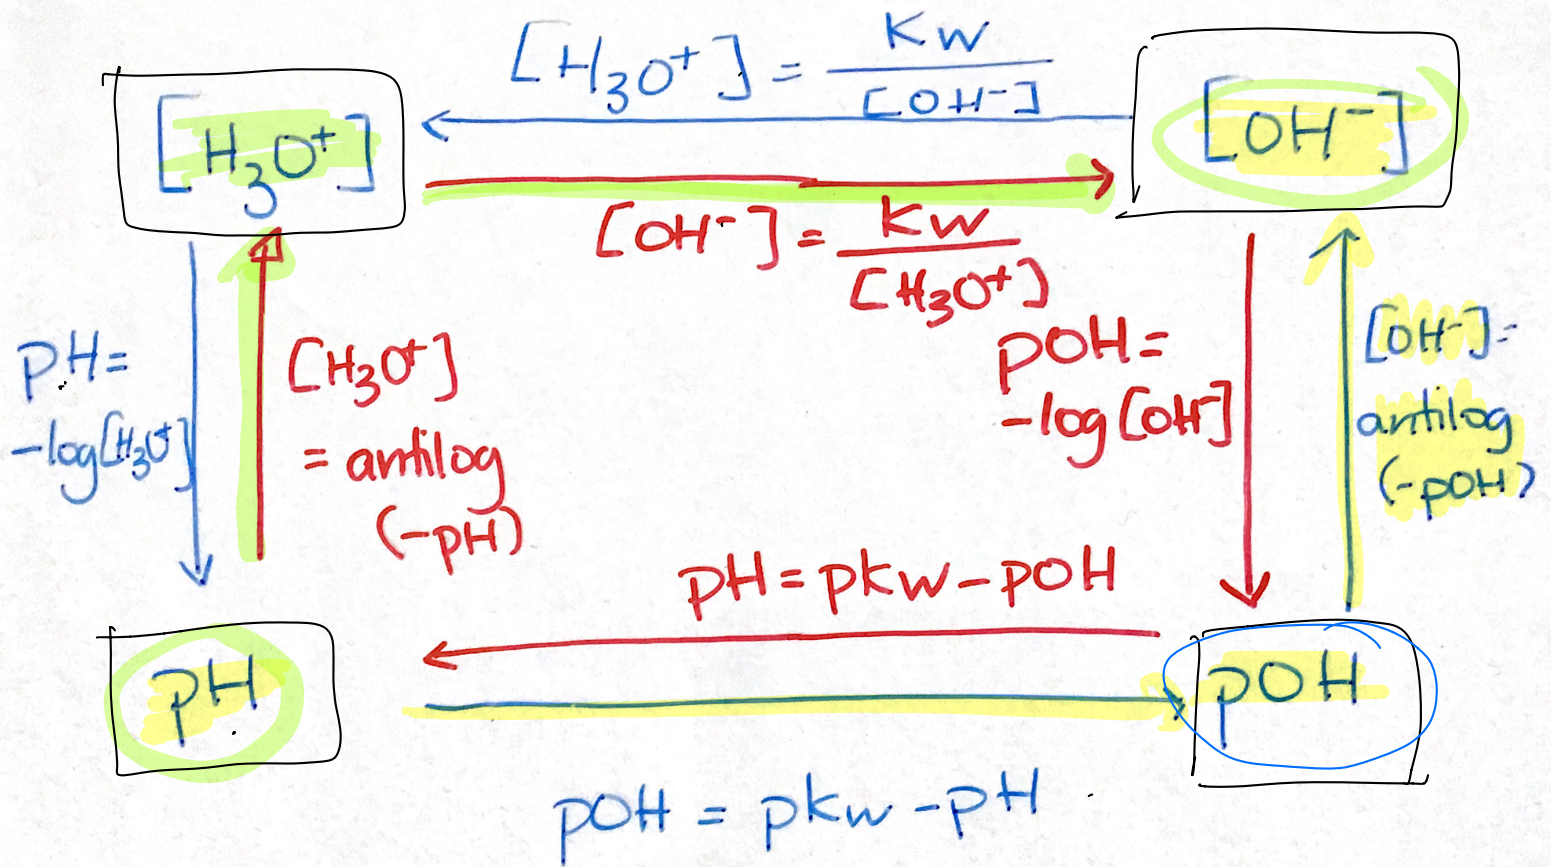 [H₃O⁺] = Kw
[OH⁻]
[H₃O⁺]
[OH⁻]
[OH⁻] = Kw
[H₃O⁺]
pH =
-log[H₃O⁺]
[H₃O⁺]
= antilog
(-pH)
pOH =
-log[OH⁻]
[OH⁻] =
antilog
(-pOH)
pH = pKw - pOH
pH
pOH
pOH = pKw - pH